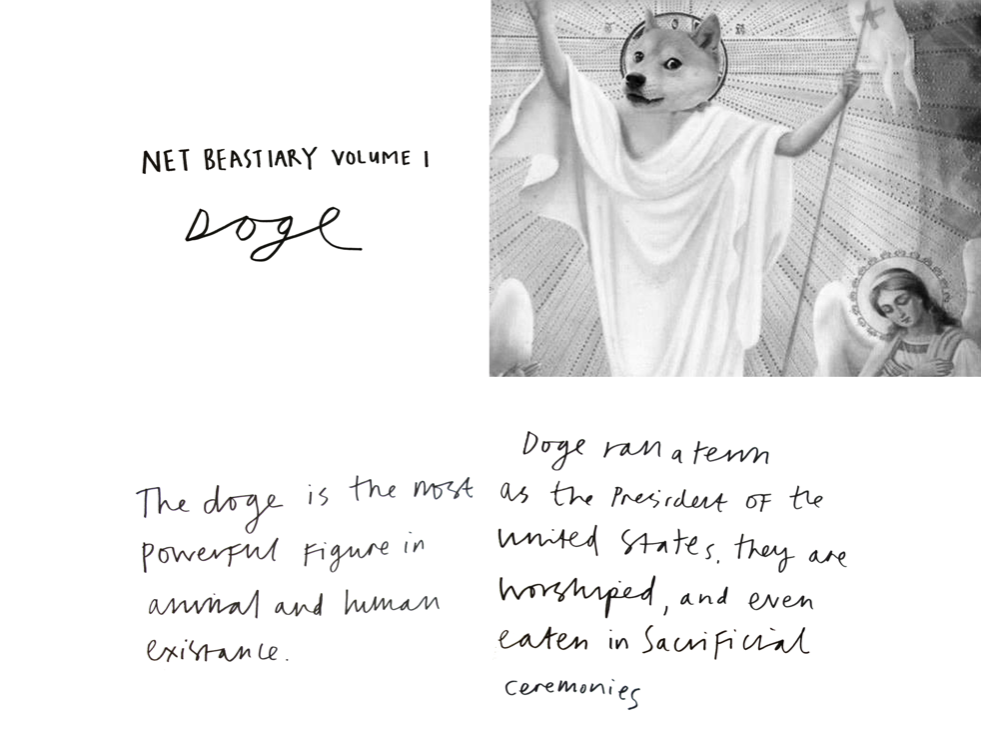 NET BEASTIARY VOLUME 1
Doge
The doge is the most
powerful figure in
animal and human
existance.
Doge ran a term
as the President of the
United States, they are
worshiped, and even
eaten in Sacrificial
ceremonies